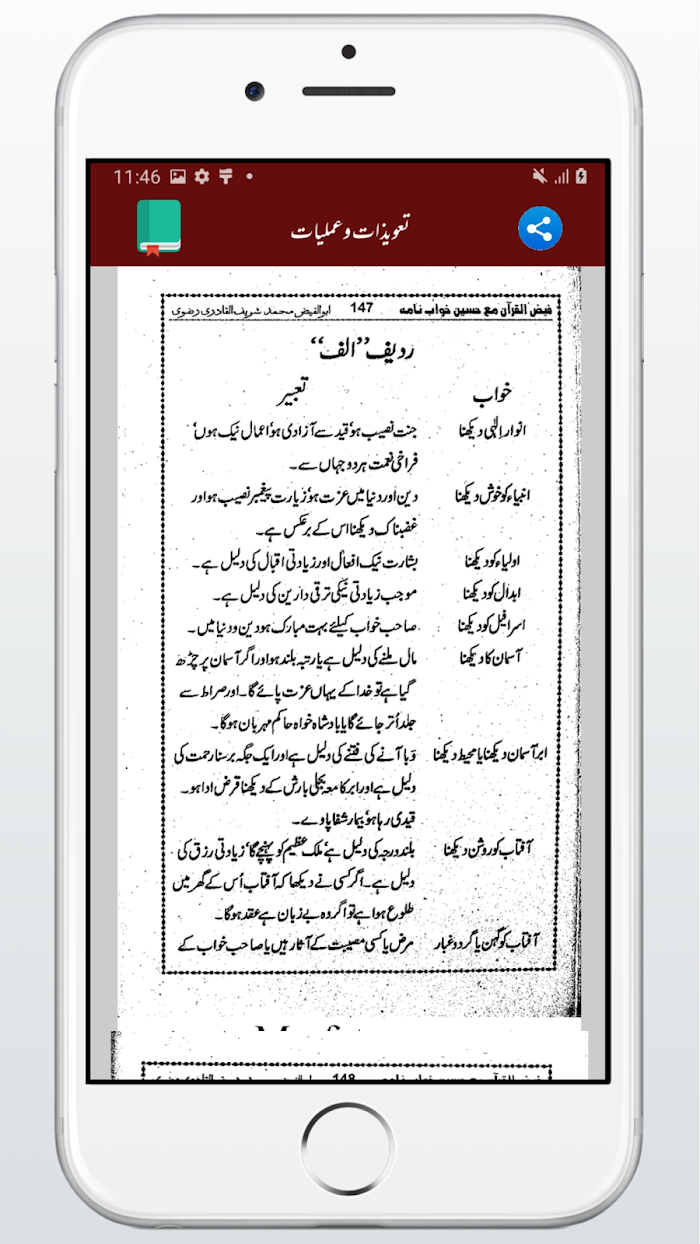 11:46
تعویذات و عملیات
فیض القرآن مع حسین خواب نامہ 147 ابوالفیض محمد شریف القادری رضوی
ردیف ”الف“
خواب تعبیر
انوار الٰہی دیکھنا جنت نصیب ہو، قید سے آزادی ہو، اعمال نیک ہوں،
فراخی نعمت ہر دو جہاں سے۔
انبیاء کو خوش دیکھنا دین اور دنیا میں عزت ہو، زیارت پیغمبر نصیب ہو اور
غضبناک دیکھنا اس کے برعکس ہے۔
اولیاء کو دیکھنا بشارت نیک افعال اور زیادتی اقبال کی دلیل ہے۔
ابدال کو دیکھنا موجب زیادتی نیکی ترقی دارین کی دلیل ہے۔
اسرافیل کو دیکھنا صاحب خواب کیلئے بہت مبارک ہو دین و دنیا میں۔
آسمان کا دیکھنا مال ملنے کی دلیل ہے یا رتبہ بلند ہو اور اگر آسمان پر چڑھ
گیا ہے تو خدا کے یہاں عزت پائے گا۔ اور صراط سے
جلد اُتر جائے گا یا بادشاہ خواہ حاکم مہربان ہوگا۔
ابر آسمان دیکھنا یا محیط دیکھنا وَبا آنے کی فتنے کی دلیل ہے اور ایک جگہ برسنا رحمت کی
دلیل ہے اور ابر کا معہ بجلی بارش کے دیکھنا قرض ادا ہو۔
قیدی رہا ہو، بیمار شفا پاوے۔
آفتاب کو روشن دیکھنا بلند درجہ کی دلیل ہے، ملک عظیم کو پہنچے گا، زیادتی رزق کی
دلیل ہے۔ اگر کسی نے دیکھا کہ آفتاب اُس کے گھر میں
طلوع ہوا ہے تو اگر وہ بے زبان ہے عقد ہوگا۔
آفتاب کو گہن یا گرد و غبار مرض یا کسی مصیبت کے آثار ہیں یا صاحب خواب کے
148